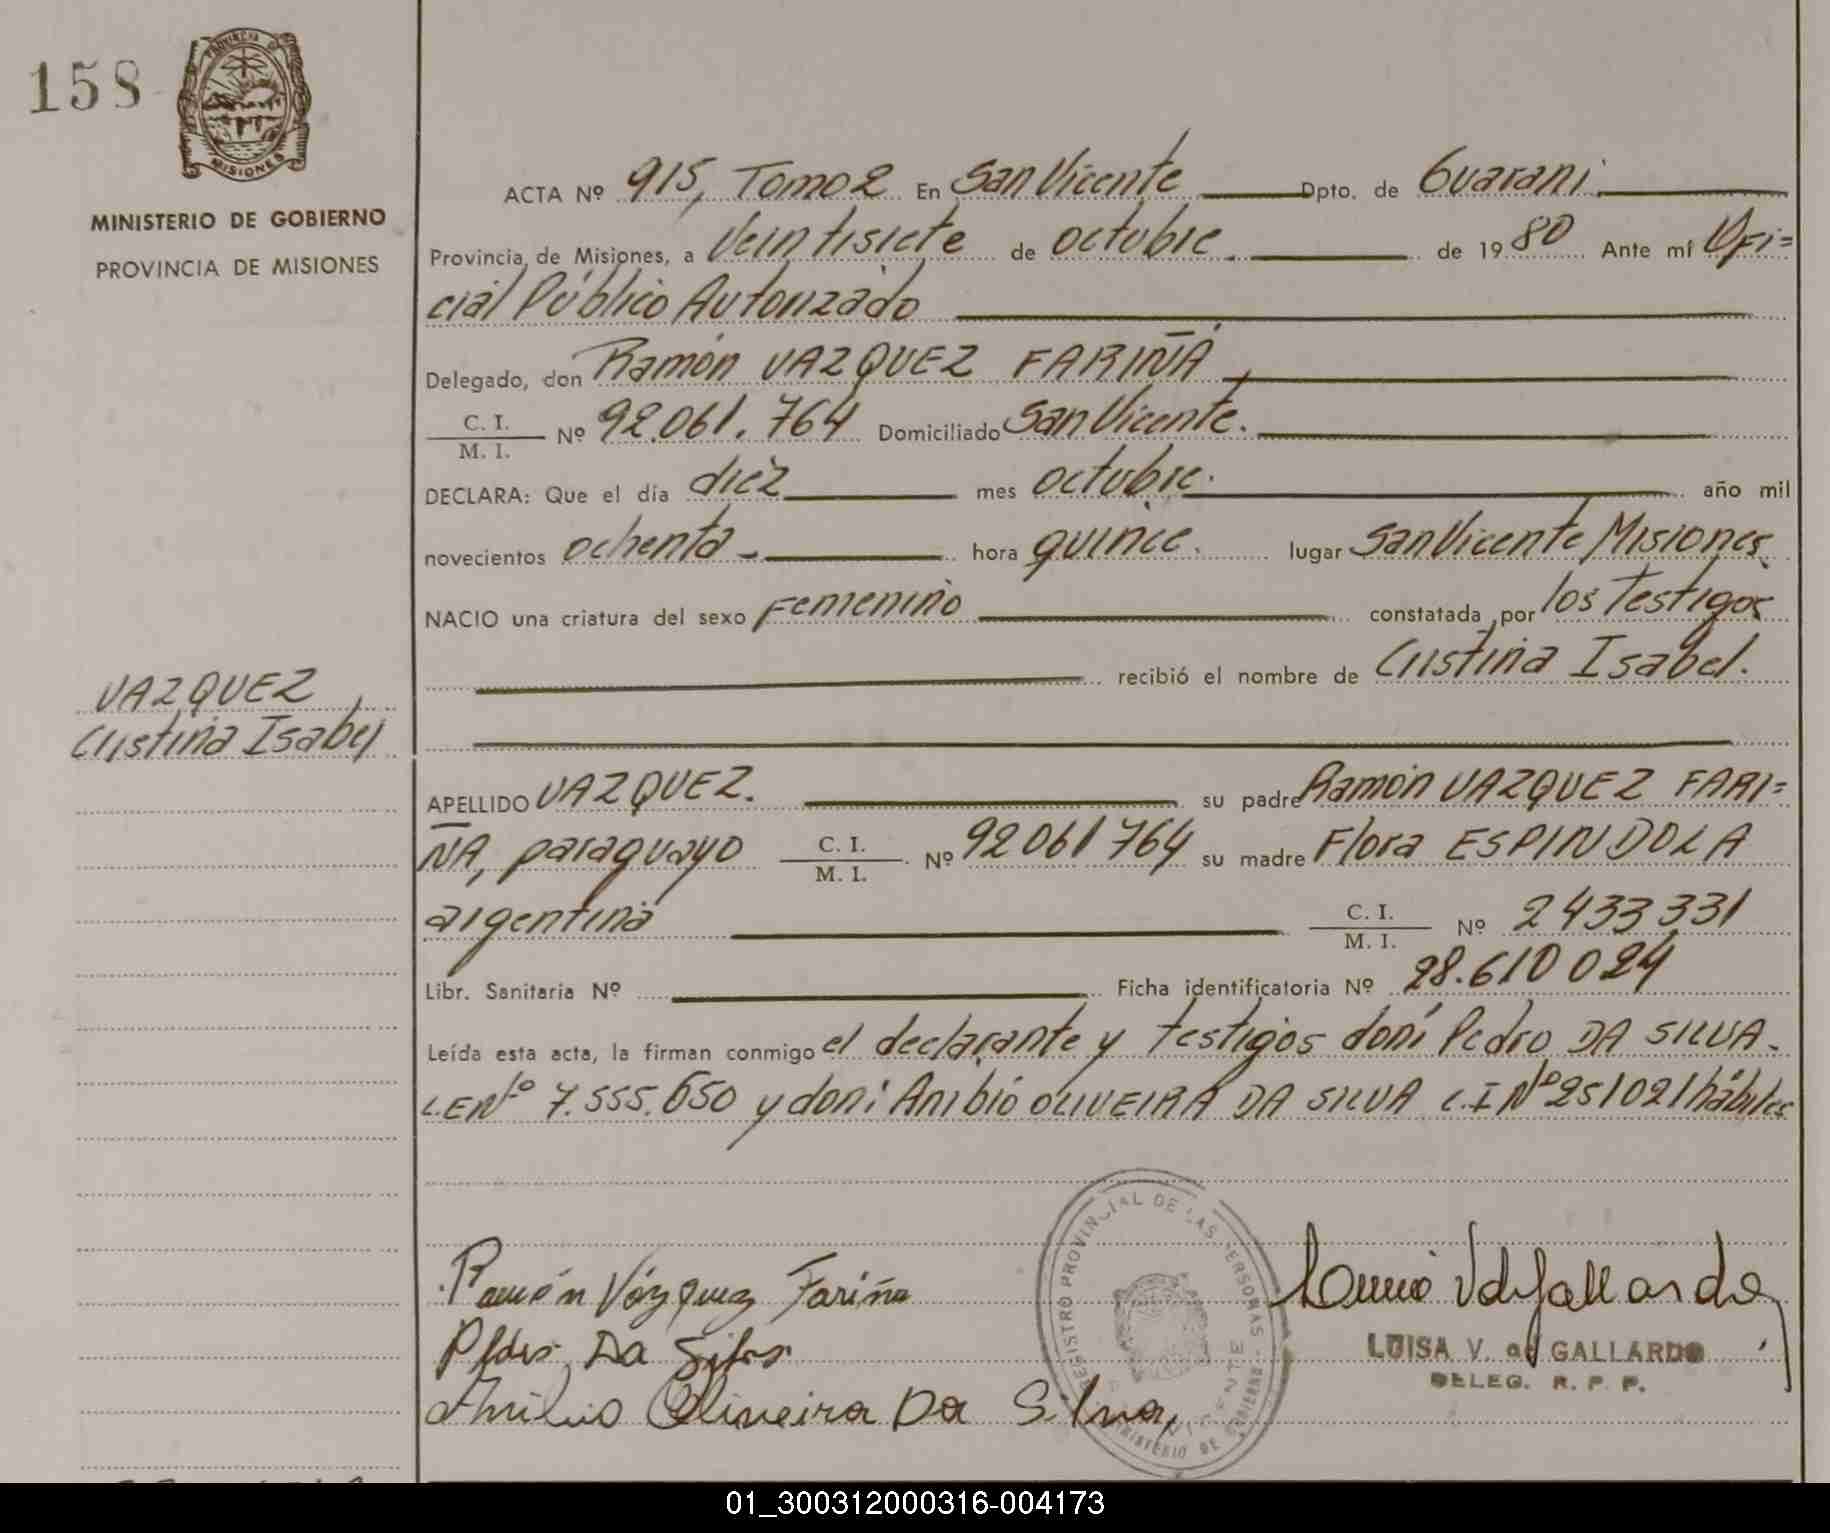 158
PROVINCIA DE
MISIONES
MINISTERIO DE GOBIERNO
PROVINCIA DE MISIONES
VAZQUEZ
Cristina Isabel
ACTA Nº 915, Tomo 2 En San Vicente Dpto. de Guarani
Provincia de Misiones, a Veintisiete de octubre. de 1980 Ante mí Ofi=
cial Público Autorizado
Delegado, don Ramón VAZQUEZ FARIÑA,
C. I.
M. I. Nº 92.061.764 Domiciliado San Vicente.
DECLARA: Que el día diez mes octubre. año mil
novecientos ochenta hora quince. lugar San Vicente Misiones
NACIO una criatura del sexo Femenino constatada por los Testigos
recibió el nombre de Cristina Isabel.
APELLIDO VAZQUEZ. su padre Ramón VAZQUEZ FARI=
ÑA, paraguayo C. I. M. I. Nº 92061764 su madre Flora ESPINDOLA
argentina C. I. M. I. Nº 2433331
Libr. Sanitaria Nº Ficha identificatoria Nº 28.610024
Leída esta acta, la firman conmigo el declarante y testigos don: Pedro DA SILVA.
L.E Nº 7.555.650 y don: Anibio OLIVEIRA DA SILVA C.I Nº 251021 hábiles
Ramón Vázquez Fariña
Da
Oliveira Da Silva
REGISTRO PROVINCIAL DE LAS PERSONAS
MINISTERIO DE GOBIERNO
LUISA V. de GALLARDO
DELEG. R. P. P.
01_300312000316-004173